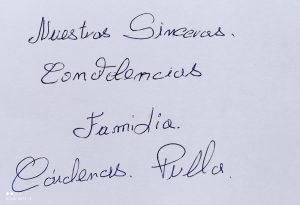 Nuestras Sinceras.
Condolencias
Familia.
Cárdenas. Pulla.